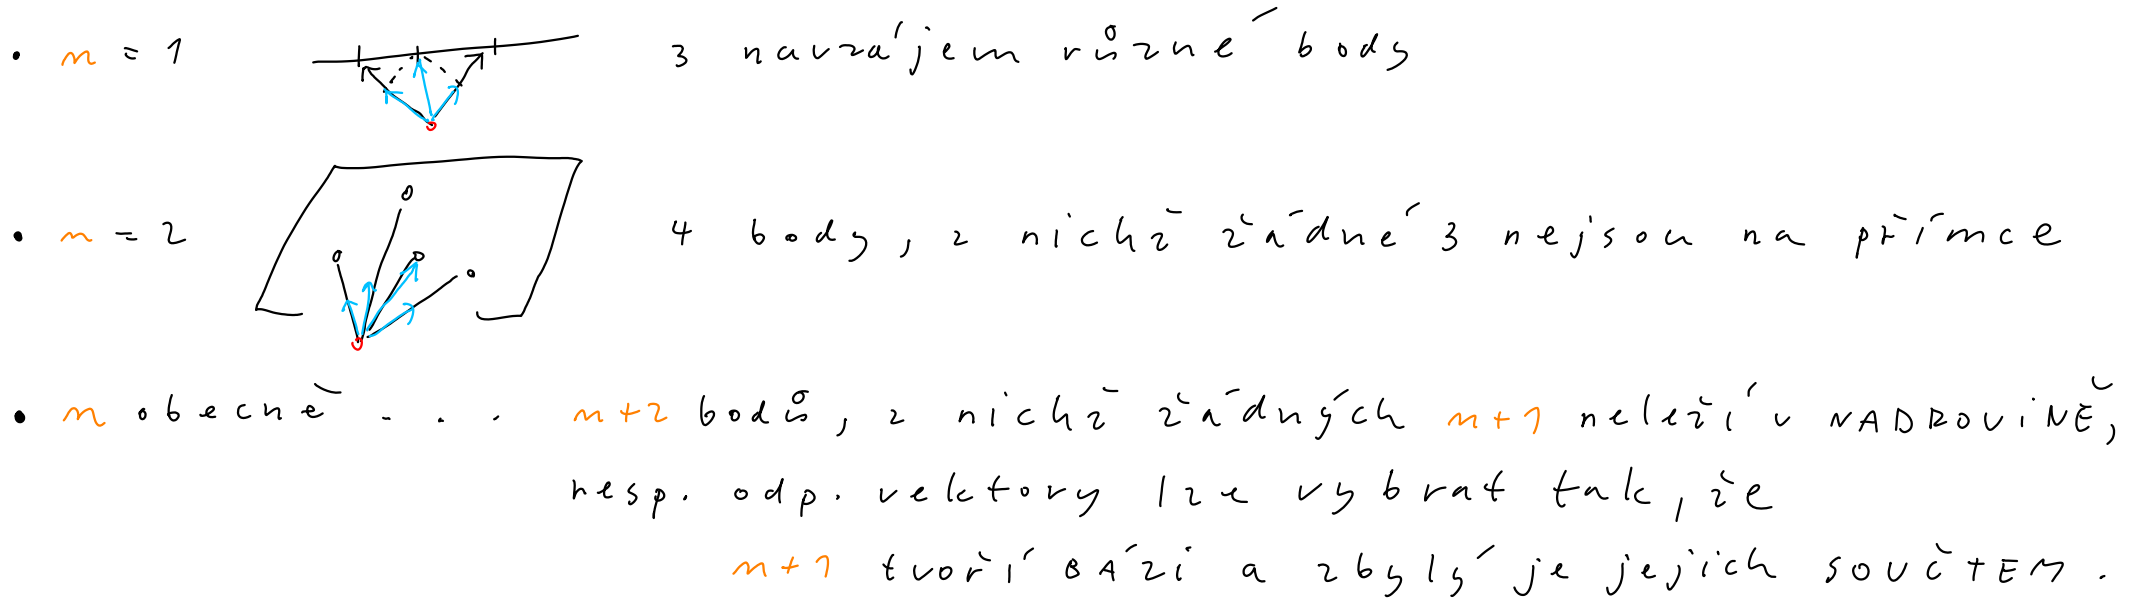 • n = 1 3 navzájem různé body
• n = 2 4 body, z nichž žádné 3 nejsou na přímce
• n obecně ... n+2 bodů, z nichž žádných n+1 neleží v NADROVINĚ,
resp. odp. vektory lze vybrat tak, že
n+1 tvoří BÁZI a zbylý je jejich SOUČTEM.